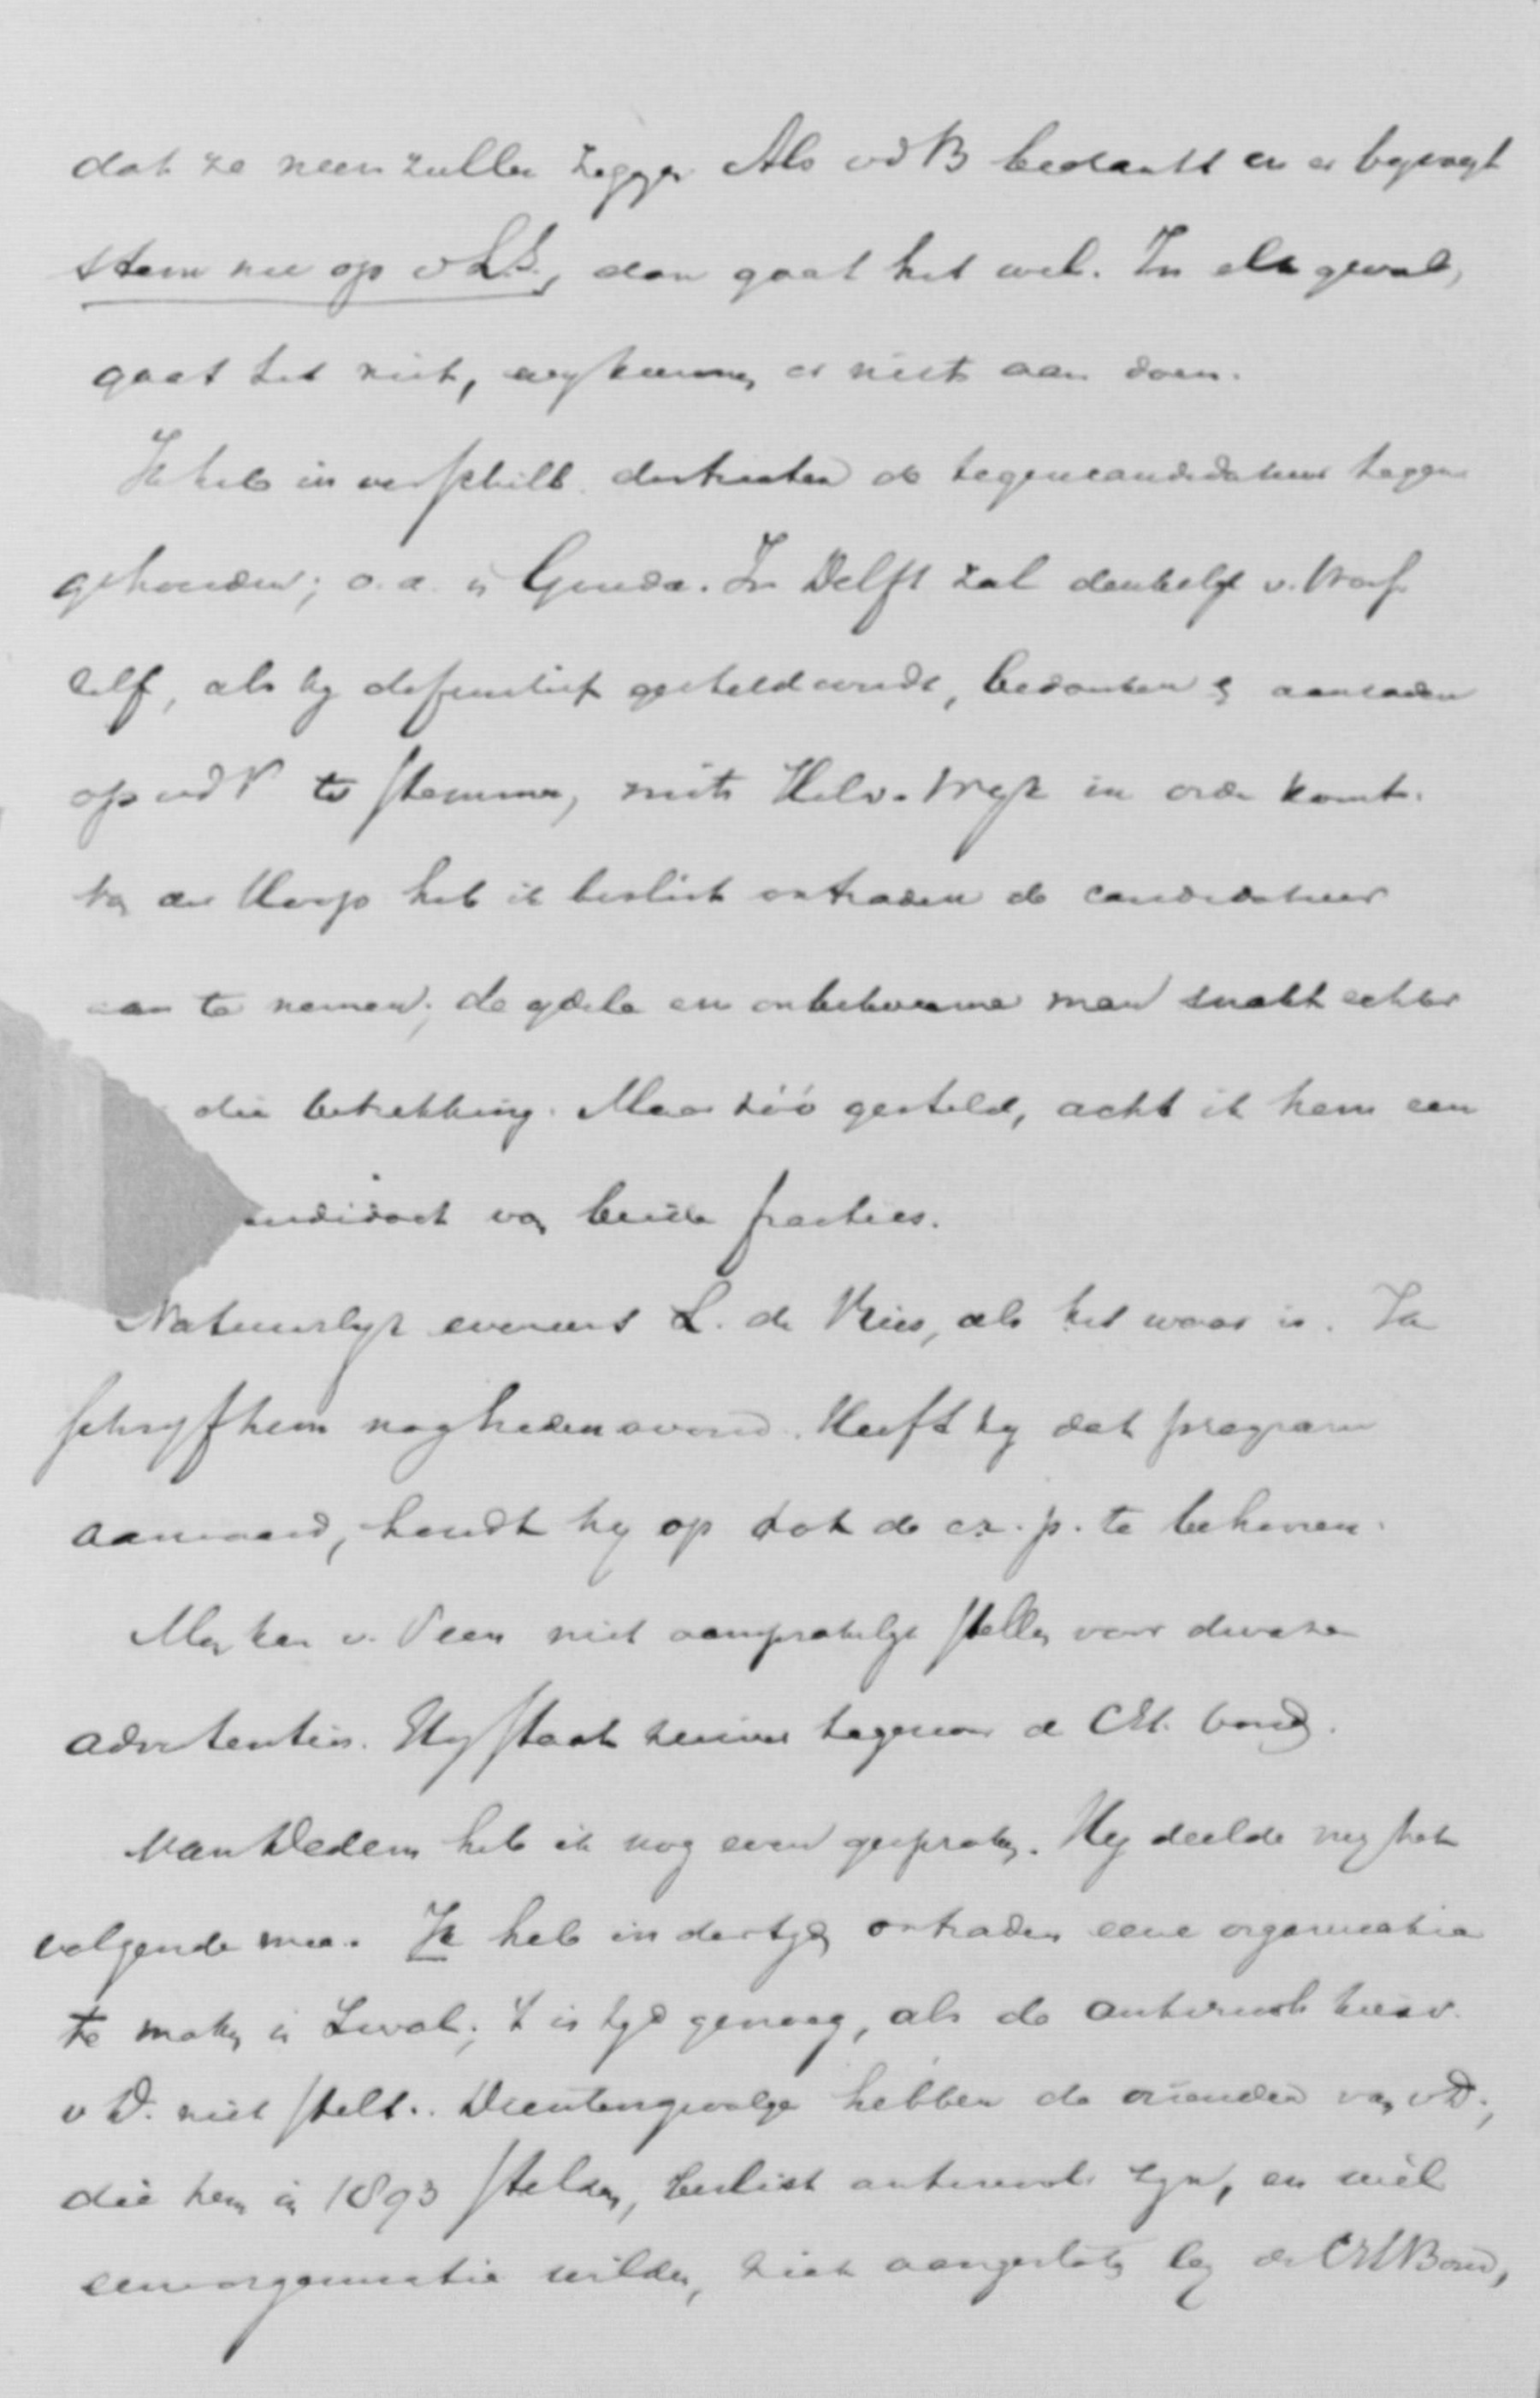 dat ze neen zullen zeggen. Als vdB bedankt en er byvoegt
stem nu op v L.S., dan gaat het wel. In elk geval,
gaat het niet, wy kunnen er niets aan doen.
Ik heb in verschill. districten de tegencandidatuur tegen
gehouden; o.a. in Gouda. In Delft zal denkelyk v.
zelf, als hy definitief gesteld wordt, bedanken en aanraden
op vdV te stemmen, mits in orde komt.
Van der Hoop heb ik beslist ontraden de candidatuur
aan te nemen; de ydele en onbekwame man snakt echter
die betrekking. Maar zóó gesteld, acht ik hem een
andidaat van beide fracties.
Natuurlyk eveneens L. de Vries, als het waar is. Ik
schryf hem nog heden avond. Heeft hy dat program
aanvaard, houdt hy op tot de a.r.p. te behooren.
Men kan v. Veen niet aansprakelyk stellen voor dwaze
advertentiën. Hy staat zuiver tegenover de CH. bond.
van Dedem heb ik nog even gesproken. Hy deelde my het
volgende mee. Ik heb indertyd ontraden eene organisatie
te maken in Zwol.; 't is tyd genoeg, als de antirevol. kiesv.
v D. niet stelt. Dientengevolge hebben de vrienden van vD.,
die hem in 1893 stelden, beslist antirevol. zyn, en wèl
eene organisatie wilden, zich aangesloten by de CHBond,